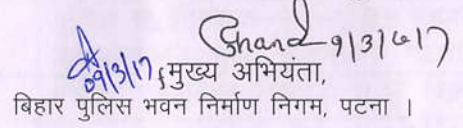 Chand 9/3/17
09/3/17 मुख्य अभियंता,
बिहार पुलिस भवन निर्माण निगम, पटना ।